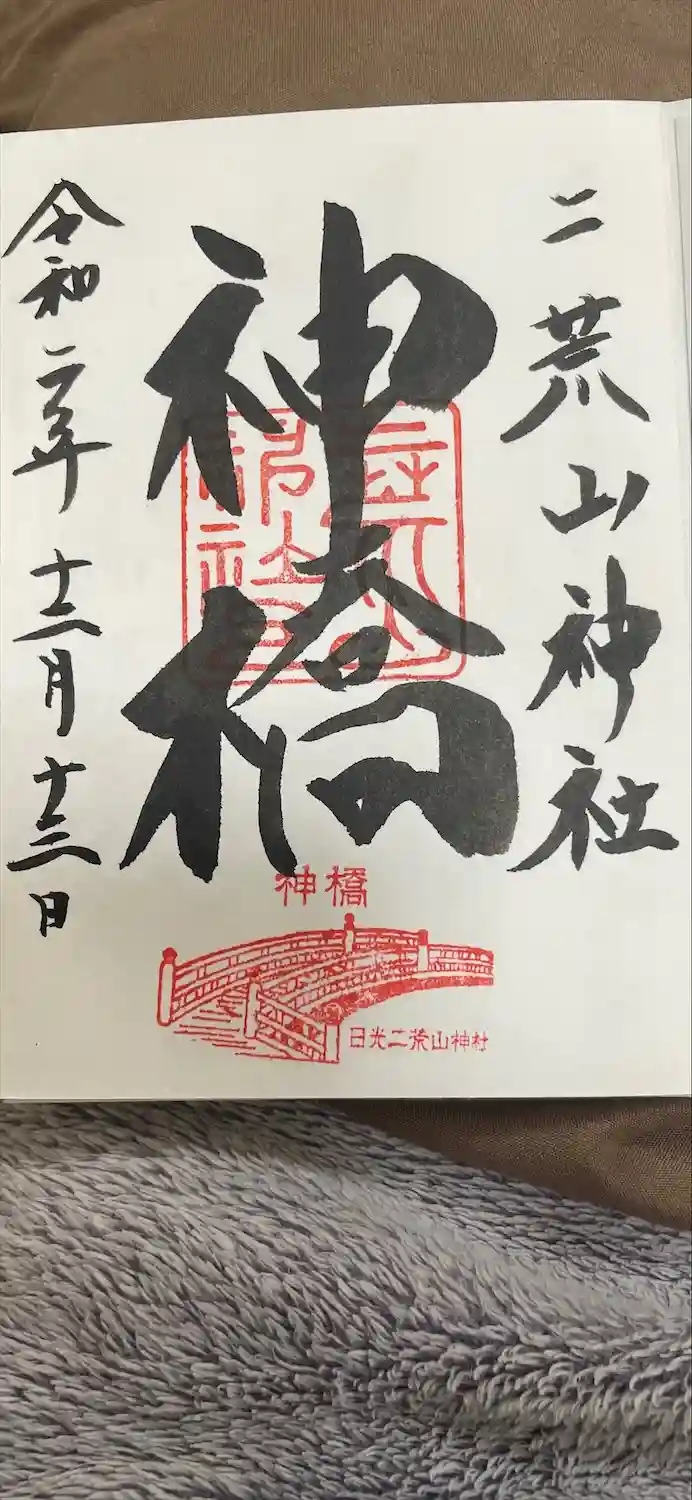 二荒山神社
神橋
令和二年十二月十三日
二荒山神社
神橋
日光二荒山神社